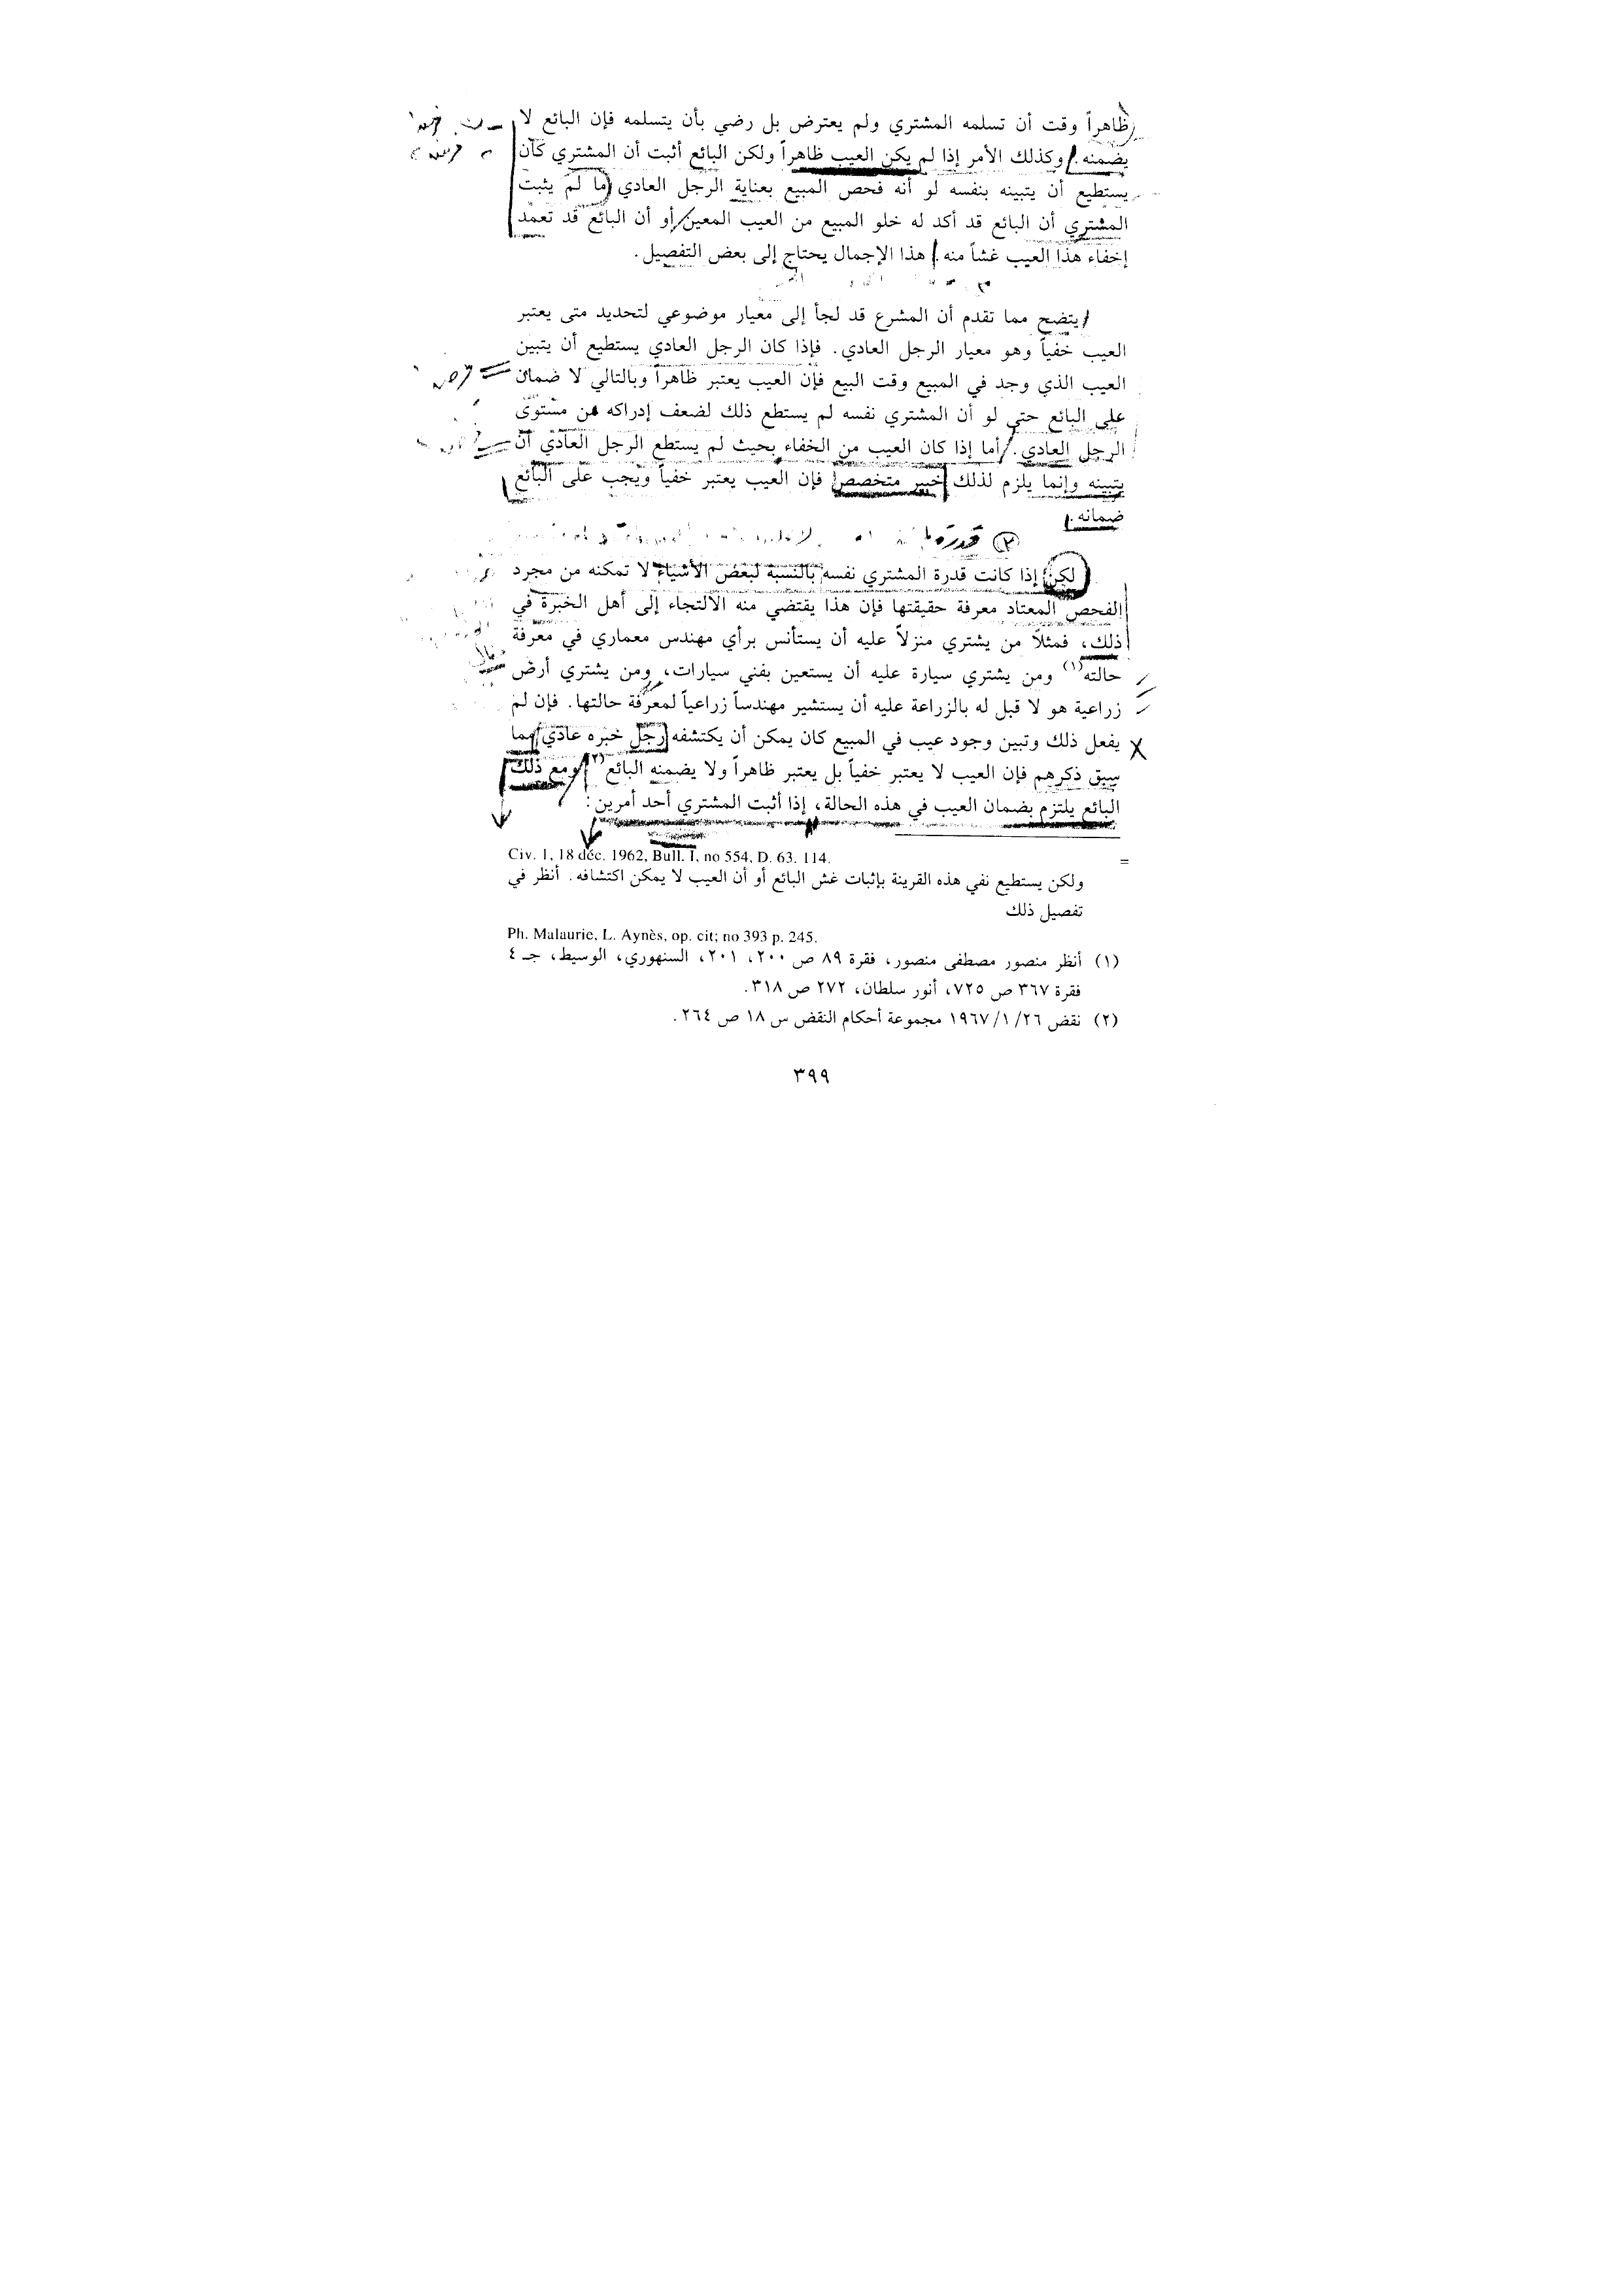 ظاهراً وقت أن تسلمه المشتري ولم يعترض بل رضي بأن يتسلمه فإن البائع لا
يضمنه. وكذلك الأمر إذا لم يكن العيب ظاهراً ولكن البائع أثبت أن المشتري كان
يستطيع أن يتبينه بنفسه لو أنه فحص المبيع بعناية الرجل العادي ما لم يثبت
المشتري أن البائع قد أكد له خلو المبيع من العيب المعين أو أن البائع قد تعمد
إخفاء هذا العيب غشاً منه. هذا الإجمال يحتاج إلى بعض التفصيل.
يتضح مما تقدم أن المشرع قد لجأ إلى معيار موضوعي لتحديد متى يعتبر
العيب خفياً وهو معيار الرجل العادي. فإذا كان الرجل العادي يستطيع أن يتبين
العيب الذي وجد في المبيع وقت البيع فإن العيب يعتبر ظاهراً وبالتالي لا ضمان
على البائع حتى لو أن المشتري نفسه لم يستطع ذلك لضعف إدراكه من مستوى
الرجل العادي. أما إذا كان العيب من الخفاء بحيث لم يستطع الرجل العادي أن
يتبينه وإنما يلزم لذلك خبير متخصص فإن العيب يعتبر خفياً ويجب على البائع
ضمانه.
(٢) قدرة
لكن إذا كانت قدرة المشتري نفسه بالنسبة لبعض الأشياء لا تمكنه من مجرد
الفحص المعتاد معرفة حقيقتها فإن هذا يقتضي منه الالتجاء إلى أهل الخبرة في
ذلك، فمثلاً من يشتري منزلاً عليه أن يستأنس برأي مهندس معماري في معرفة
حالته(١) ومن يشتري سيارة عليه أن يستعين بفني سيارات، ومن يشتري أرض
زراعية هو لا قبل له بالزراعة عليه أن يستشير مهندساً زراعياً لمعرفة حالتها. فإن لم
يفعل ذلك وتبين وجود عيب في المبيع كان يمكن أن يكتشفه رجل خبره عادي مما
سبق ذكرهم فإن العيب لا يعتبر خفياً بل يعتبر ظاهراً ولا يضمنه البائع(٢) ومع ذلك
البائع يلتزم بضمان العيب في هذه الحالة، إذا أثبت المشتري أحد أمرين:
= Civ. 1, 18 déc. 1962, Bull. I, no 554, D. 63. 114.
ولكن يستطيع نفي هذه القرينة بإثبات غش البائع أو أن العيب لا يمكن اكتشافه. أنظر في
تفصيل ذلك
Ph. Malaurie, L. Aynès, op. cit; no 393 p. 245.
(١) أنظر منصور مصطفى منصور، فقرة ٨٩ ص ٢٠٠، ٢٠١، السنهوري، الوسيط، جـ ٤
فقرة ٣٦٧ ص ٧٢٥، أنور سلطان، ٢٧٢ ص ٣١٨.
(٢) نقض ٢٦/ ١/ ١٩٦٧ مجموعة أحكام النقض س ١٨ ص ٢٦٤.
٣٩٩